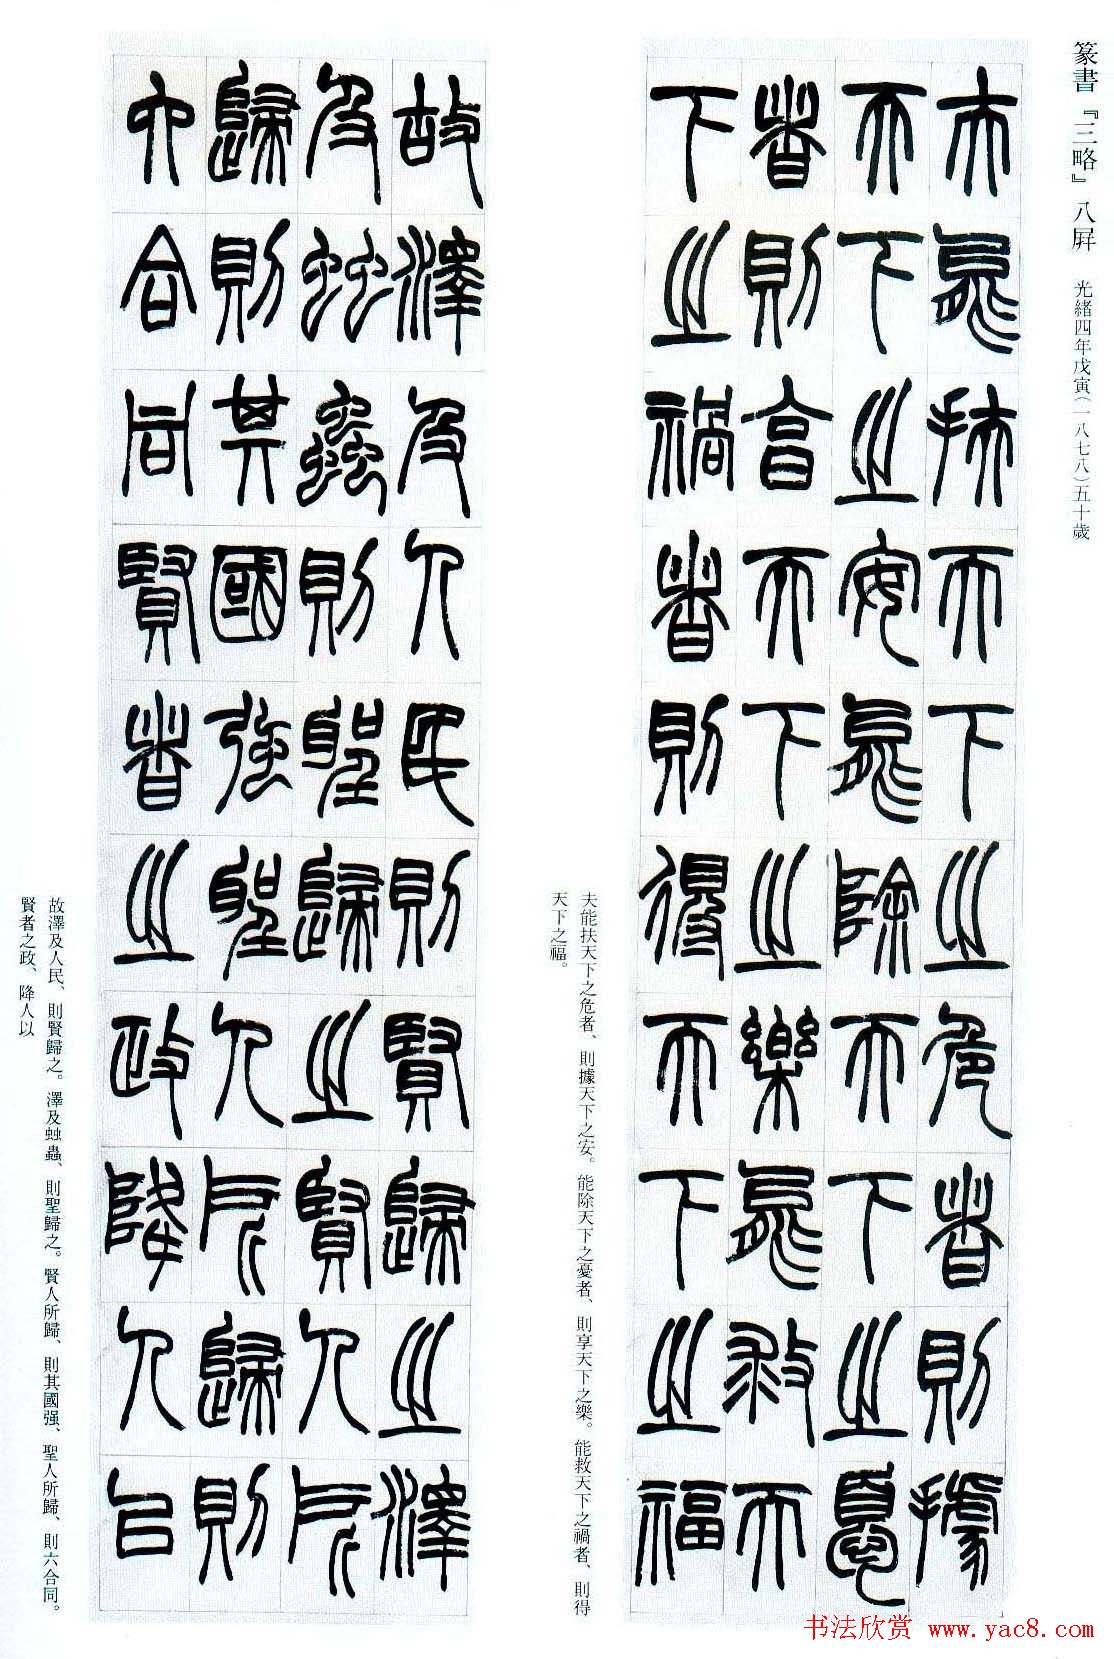 篆書『三略』八屏 光緒四年戊寅(一八七八)五十歲
夫能扶天下之危者則據
天下之安能除天下之憂
者則享天下之樂能救天
下之禍者則得天下之福
夫能扶天下之危者、則據天下之安。能除天下之憂者、則享天下之樂。能救天下之禍者、則得
天下之福。
故澤及人民則賢歸之澤
及䖵蟲則聖歸之賢人所
歸則其國强聖人所歸則
六合同賢者之政降人以
故澤及人民、則賢歸之。澤及䖵蟲、則聖歸之。賢人所歸、則其國强、聖人所歸、則六合同。
賢者之政、降人以
书法欣赏 www.yac8.com